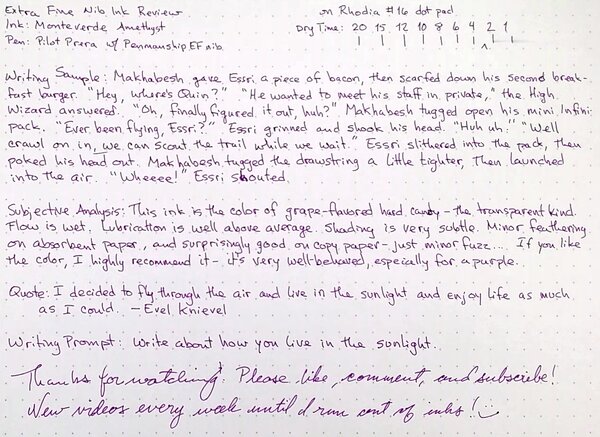 Extra Fine Nib Ink Review
on Rhodia #16 dot pad
Ink: Monteverde Amethyst
Dry Time: 20 15 12 10 8 6 4 2 1
Pen: Pilot Prera w/ Penmanship EF nib
Writing Sample: Makhabesh gave Essri a piece of bacon, then scarfed down his second break-
fast burger. "Hey, where's Quin?" "He wanted to meet his staff in private," the High
Wizard answered. "Oh, finally figured it out, huh?" Makhabesh tugged open his mini Infini
pack. "Ever been flying, Essri?" Essri grinned and shook his head. "Huh uh." "Well
crawl on in, we can scout the trail while we wait." Essri slithered into the pack, then
poked his head out. Makhabesh tugged the drawstring a little tighter, then launched
into the air. "Wheeee!" Essri shouted.
Subjective Analysis: This ink is the color of grape-flavored hard candy - the transparent kind.
Flow is wet. Lubrication is well above average. Shading is very subtle. Minor feathering
on absorbent paper, and surprisingly good on copy paper - just minor fuzz.... If you like
the color, I highly recommend it - it's very well-behaved, especially for a purple.
Quote: I decided to fly through the air and live in the sunlight and enjoy life as much
as I could. - Evel Knievel
Writing Prompt: Write about how you live in the sunlight.
Thanks for watching! Please like, comment, and subscribe!
New videos every week until I run out of inks! :)